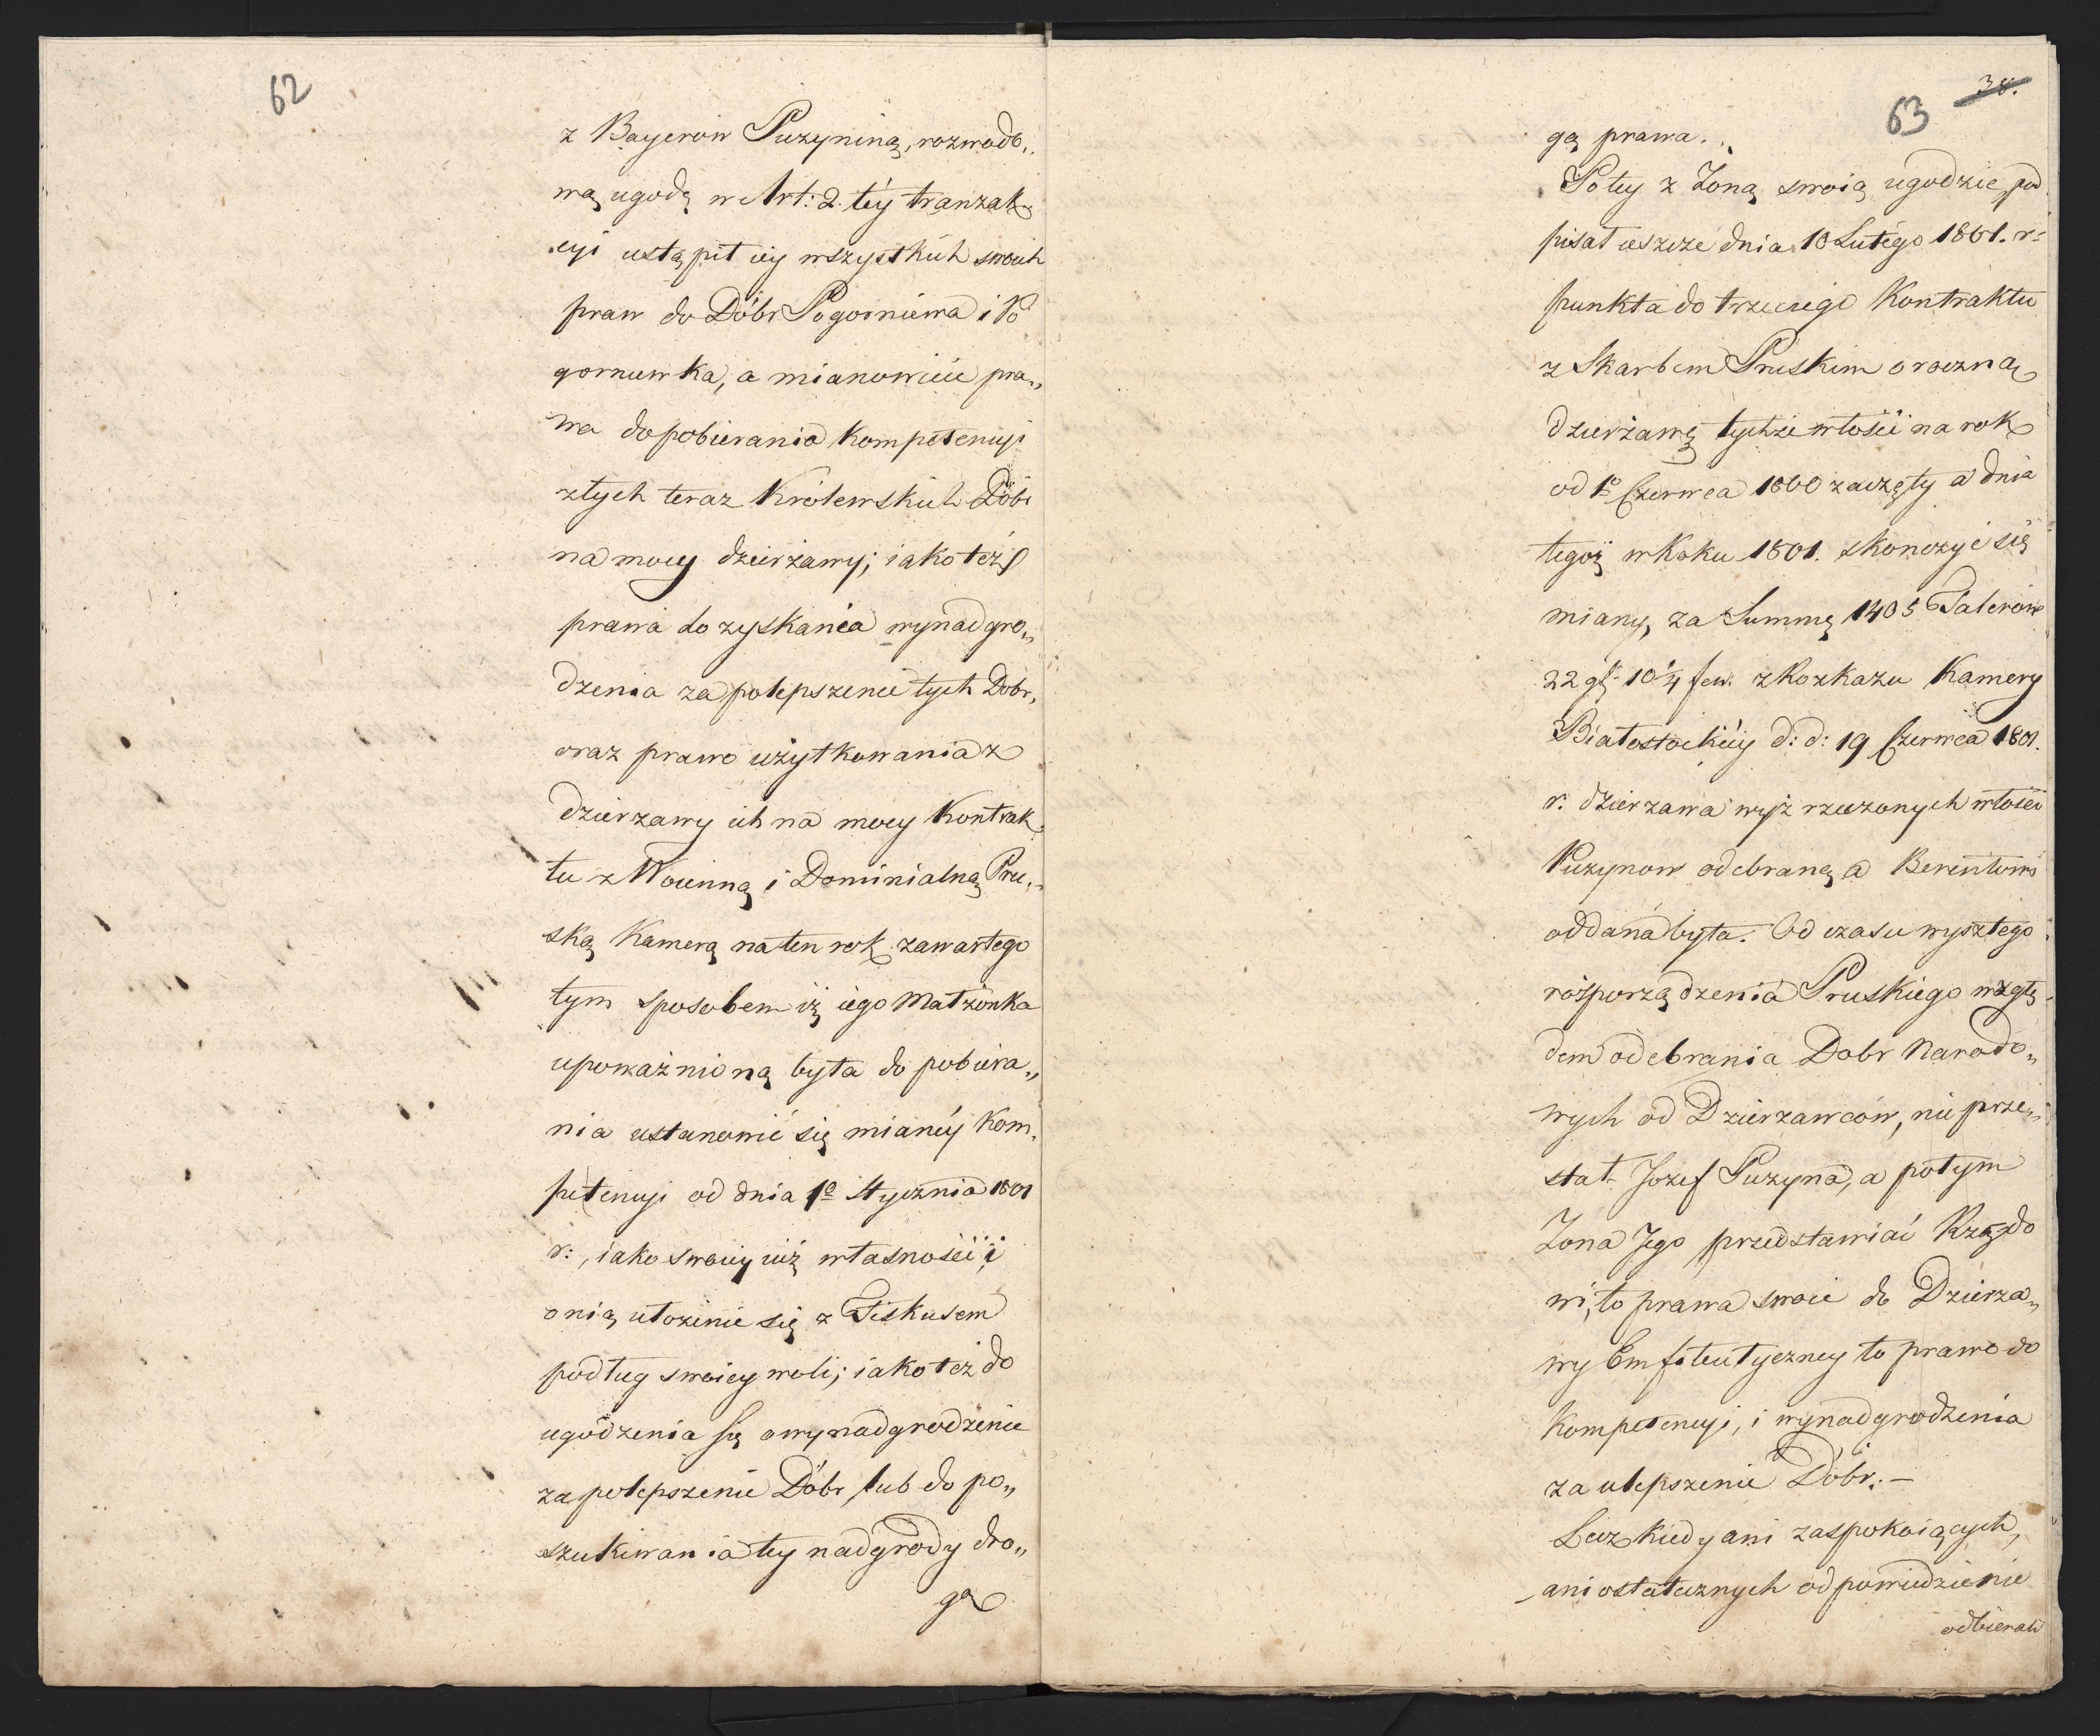 62
z Bayerow Puzyniną, rozwodo„
wą ugodą w Art: 2. téy tranzak„
cyi ustąpił iey wszystkich swoich
praw do Dóbr Pogorniewa i Po
gorniewka, a mianowicie pra„
wa do pobierania Kompetencyi
z tych teraz Królewskich Dóbr
na mocy dzierżawy; iako też
prawa do zyskania wynadgro„
dzenia za polepszenie tych Dobr,
oraz prawo użytkowania z
dzierzawy ich na mocy Kontrak„
tu z Woienną i Dominialną Pru„
ską Kamerą na ten rok zawartego
tym sposobem iż iego Małżonka
upoważnioną była do pobiera„
nia ustanowić się mianéy Kom„
petencyi od dnia 1º Stycznia 1801
r:, iako swoiey iuż własności i
o nią ułożenie się z Fiskusem
podług swoiey woli; iako też do
ugodzenia się o wynadgrodzenie
za polepszenie Dóbr, lub do po„
szukiwania tey nadgrody dro„
gą
38.
63
gą prawa.
Po tey z Żoną swoią ugodzie, pod
pisał ieszcze dnia 18 Lutego 1801. r:
punkta do trzeciego Kontraktu
z Skarbem Pruskim o roczną
dzierżawę tychże włości na rok
od 1º Czerwca 1800 zaczęty a dnia
tegoż w Roku 1801. skonczyć się
miany, za Summę 1405 Talerow
22 gł: 10 1/4 fen. z Rozkazu Kamery
Białostockiéy d: d: 19 Czerwca 1801.
r. dzierzawa wyż rzeczonych włości
Puzynow odebraną a Berentowi
oddana była. Od czasu wyszłego
rozporządzenia Pruskiego wzglę„
dem odebrania Dobr Narodo„
wych od Dzierzawców, nie prze„
stał Jozef Puzyna, a potym
Żona Jego przedstawiać Rządo
wi, to prawa swoie do Dzierza„
wy Emfiteutyczney to prawo do
Kompetencyi, i wynadgrodzenia
za ulepszenie Dóbr. –
Lecz kiedy ani zaspokoiących,
ani ostatecznych odpowiedzienie
odbierali